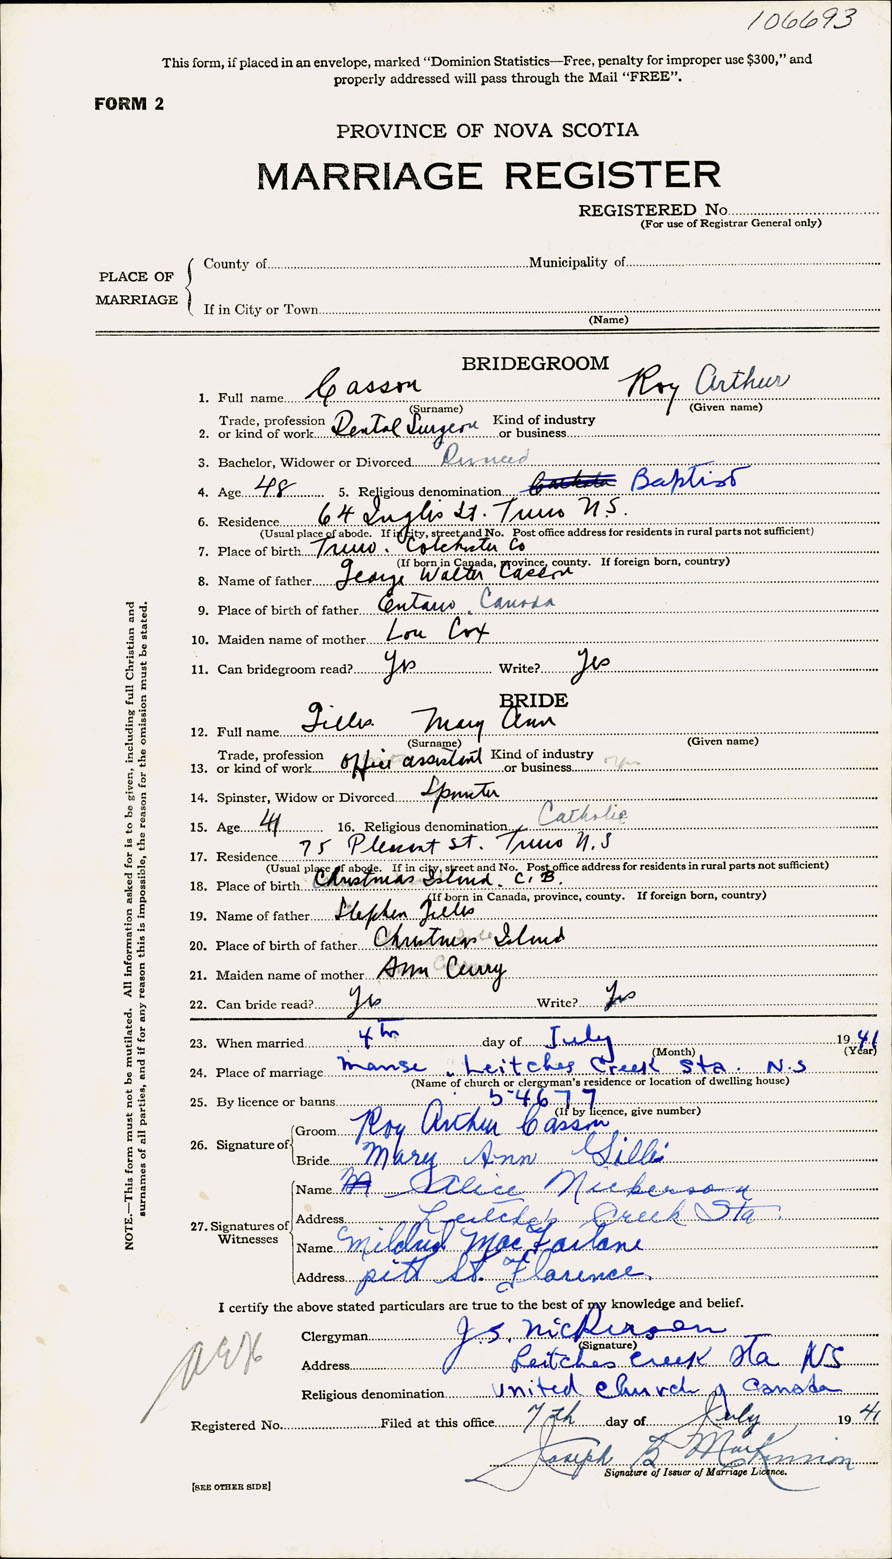 106693
This form, if placed in an envelope, marked "Dominion Statistics—Free, penalty for improper use $300," and
properly addressed will pass through the Mail "FREE".
FORM 2
PROVINCE OF NOVA SCOTIA
MARRIAGE REGISTER
REGISTERED No.
(For use of Registrar General only)
PLACE OF MARRIAGE
County of Municipality of
If in City or Town
(Name)
BRIDEGROOM
1. Full name Casson Roy Arthur
(Surname) (Given name)
2. Trade, profession or kind of work Dental Surgeon Kind of industry or business
3. Bachelor, Widower or Divorced Divorced
4. Age 48 5. Religious denomination Baptist
6. Residence 64 Inglis St. Truro N.S.
(Usual place of abode. If in city, street and No. Post office address for residents in rural parts not sufficient)
7. Place of birth Truro. Colchester Co
(If born in Canada, province, county. If foreign born, country)
8. Name of father George Walter Casson
9. Place of birth of father Ontario. Canada
10. Maiden name of mother Lou Cox
11. Can bridegroom read? Yes Write? Yes
BRIDE
12. Full name Gillis Mary Ann
(Surname) (Given name)
13. Trade, profession or kind of work office assistant Kind of industry or business
14. Spinster, Widow or Divorced Spinster
15. Age 41 16. Religious denomination Catholic
17. Residence 75 Pleasant St. Truro N.S
(Usual place of abode. If in city, street and No. Post office address for residents in rural parts not sufficient)
18. Place of birth Christmas Island. C.B.
(If born in Canada, province, county. If foreign born, country)
19. Name of father Stephen Gillis
20. Place of birth of father Christmas Island
21. Maiden name of mother Ann Curry
22. Can bride read? Yes Write? Yes
23. When married 4th day of July 1941
(Month) (Year)
24. Place of marriage Manse, Leitches Creek Sta. N.S
(Name of church or clergyman's residence or location of dwelling house)
25. By licence or banns 54677
(If by licence, give number)
26. Signature of
Groom Roy Arthur Casson
Bride Mary Ann Gillis
27. Signatures of Witnesses
Name Alice Nickerson
Address Leitches Creek Sta.
Name Mildred MacFarlane
Address pitt St. Florence.
I certify the above stated particulars are true to the best of my knowledge and belief.
Clergyman J.S. Nickerson
(Signature)
Address Leitches Creek Sta NS
Religious denomination United Church of Canada
Registered No. Filed at this office 7th day of July 1941
Joseph B MacKinnon
Signature of Issuer of Marriage Licence.
[SEE OTHER SIDE]
NOTE.—This form must not be mutilated. All information asked for is to be given, including full Christian and
surnames of all parties, and if for any reason this is impossible, the reason for the omission must be stated.